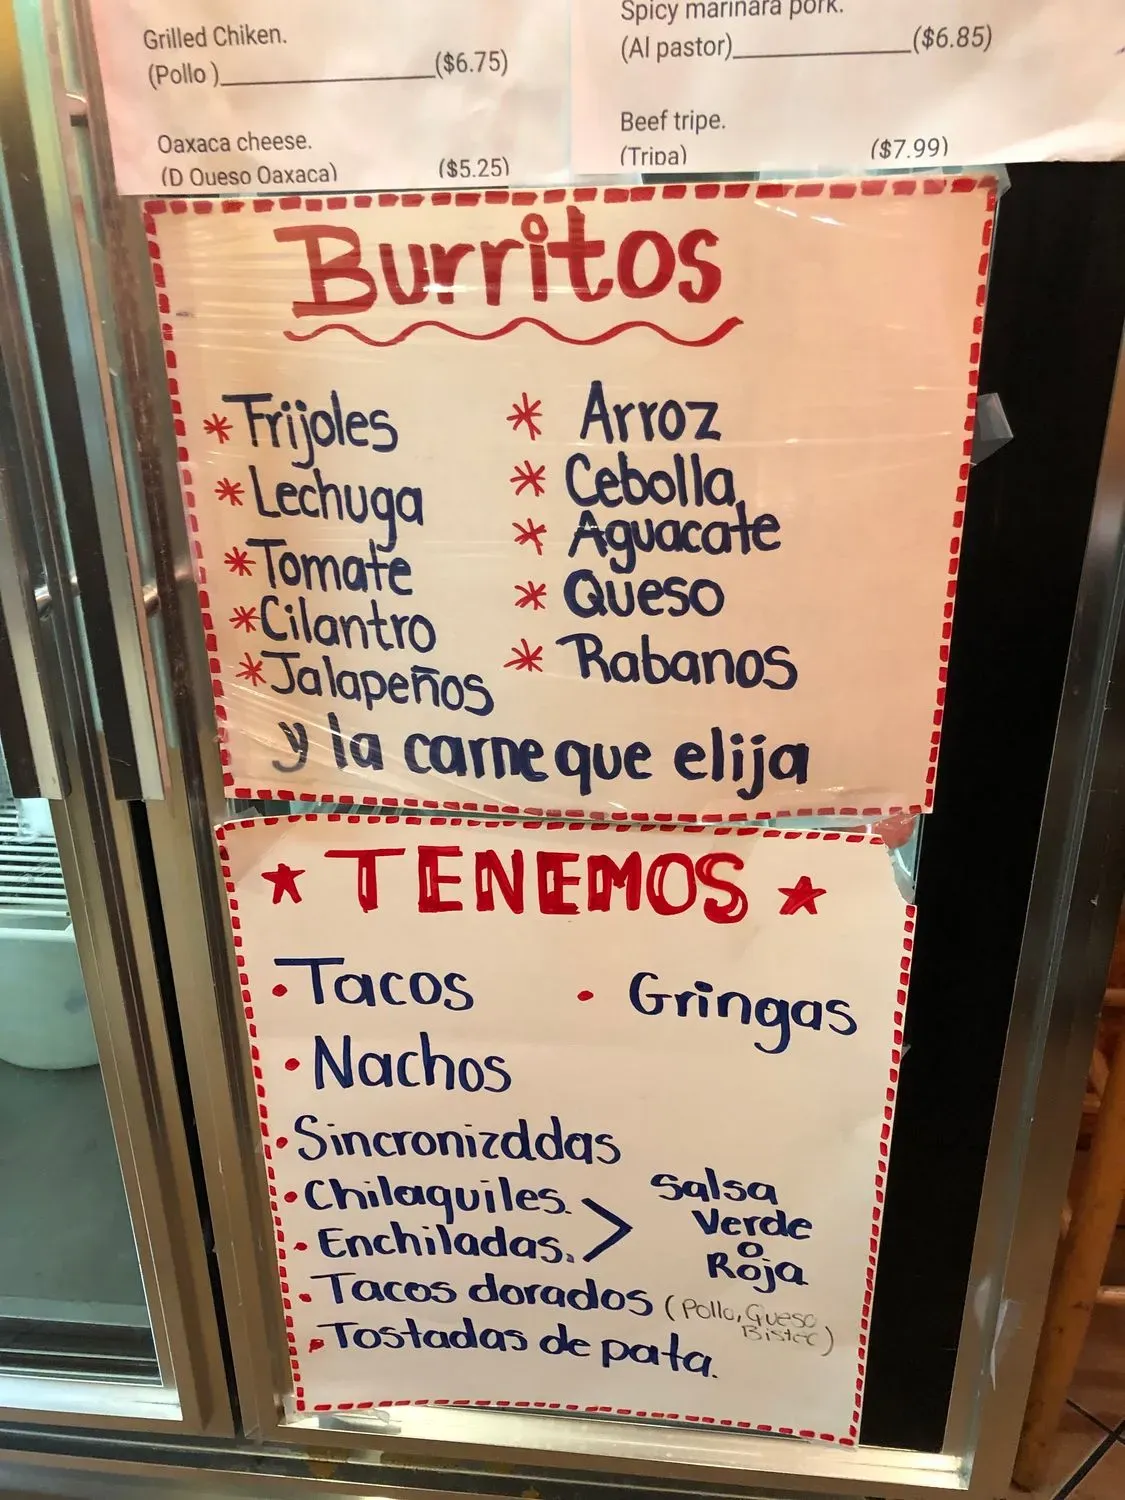 Grilled Chiken.
(Pollo )____________________($6.75)
Oaxaca cheese.
(D Queso Oaxaca) ($5.25)
Spicy marinara pork.
(Al pastor)________________($6.85)
Beef tripe.
(Tripa) ($7.99)
Burritos
* Frijoles
* Lechuga
* Tomate
* Cilantro
* Jalapeños
* Arroz
* Cebolla,
* Aguacate
* Queso
* Rabanos
y la carne que elija
★ TENEMOS ★
• Tacos
• Gringas
• Nachos
• Sincronizddas
• Chilaquiles.
• Enchiladas. >
Salsa
Verde
o
Roja
• Tacos dorados (Pollo, Queso
Bistec)
• Tostadas de pata.